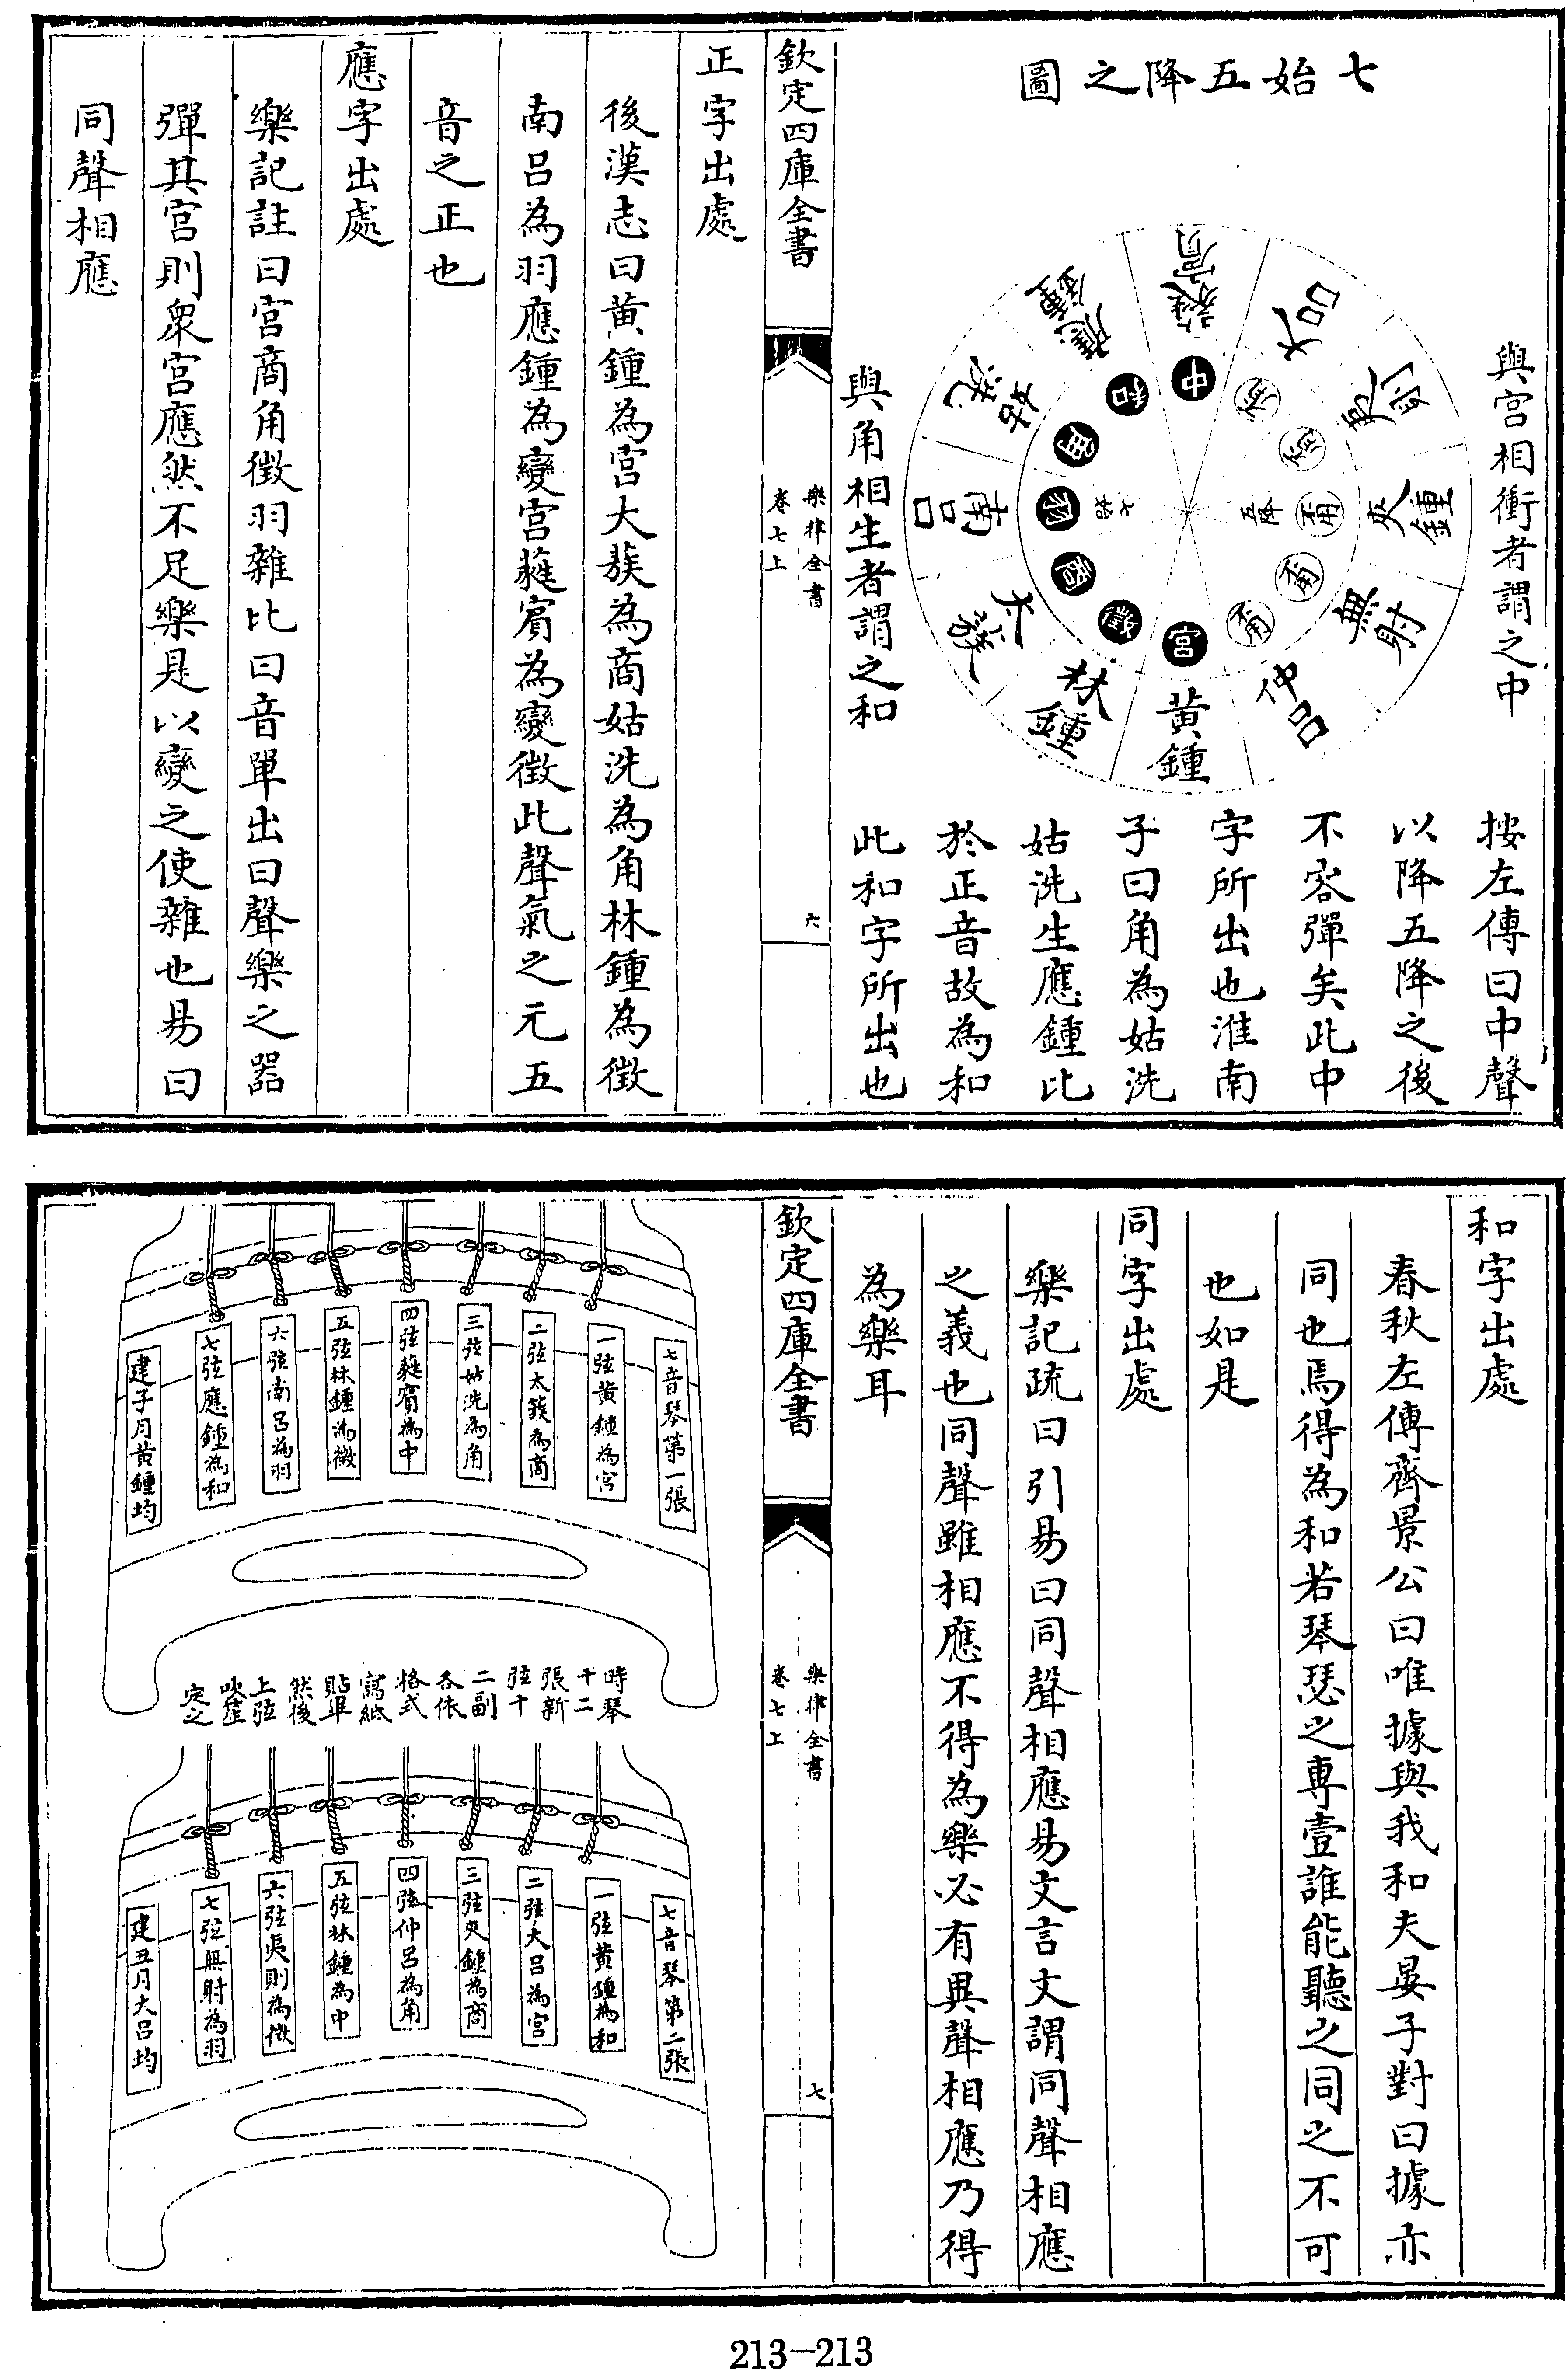 七始五降之圖
與宮相衝者謂之中
蕤賔
大呂
夷則
夾鍾
無射
仲呂
黃鍾
林鍾
太蔟
南呂
姑洗
應鍾
中
宮
徵
商
羽
角
和
七始
五降
與角相生者謂之和
按左傳曰中聲
以降五降之後
不容彈矣此中
字所出也淮南
子曰角為姑洗
姑洗生應鍾比
於正音故為和
此和字所出也
欽定四庫全書
樂律全書
卷七上
六
正字出處
後漢志曰黃鍾為宮大蔟為商姑洗為角林鍾為徵
南呂為羽應鍾為變宮蕤賔為變徵此聲氣之元五
音之正也
應字出處
樂記註曰宮商角徵羽雜比曰音單出曰聲樂之器
彈其宮則衆宮應然不足樂是以變之使雜也易曰
同聲相應
和字出處
春秋左傳齊景公曰唯據與我和夫晏子對曰據亦
同也焉得為和若琴瑟之專壹誰能聽之同之不可
也如是
同字出處
樂記疏曰引易曰同聲相應易文言文謂同聲相應
之義也同聲雖相應不得為樂必有異聲相應乃得
為樂耳
欽定四庫全書
樂律全書
卷七上
七
七音琴第一張
一弦黃鍾為宮
二弦太簇為商
三弦姑洗為角
四弦蕤賔為中
五弦林鍾為徵
六弦南呂為羽
七弦應鍾為和
建子月黃鍾均
時琴
十二
張新
弦十
二副
各依
格式
寫紙
貼畢
然後
上弦
吹笙
定之
七音琴第二張
一弦黃鍾為和
二弦大呂為宮
三弦夾鍾為商
四弦仲呂為角
五弦林鍾為中
六弦夷則為徵
七弦無射為羽
建丑月大呂均
213-213